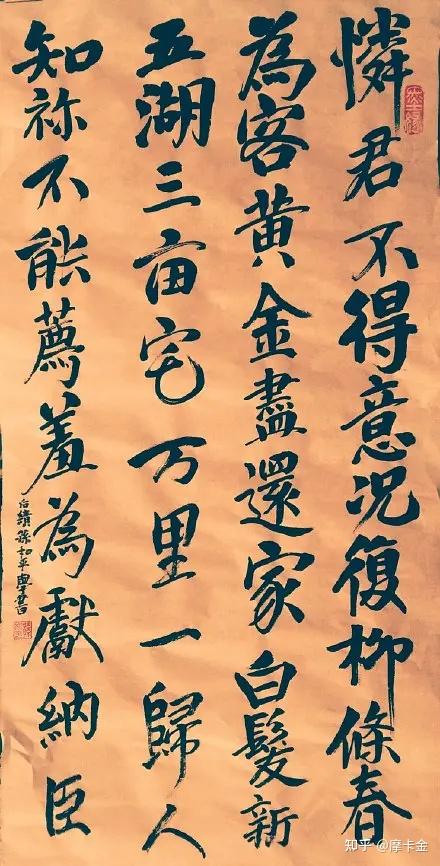 憐君不得意況復柳條春
為客黃金盡還家白髮新
五湖三亩宅万里一歸人
知祢不能薦羞為獻納臣
后績孫知平學書
知乎 @摩卡金